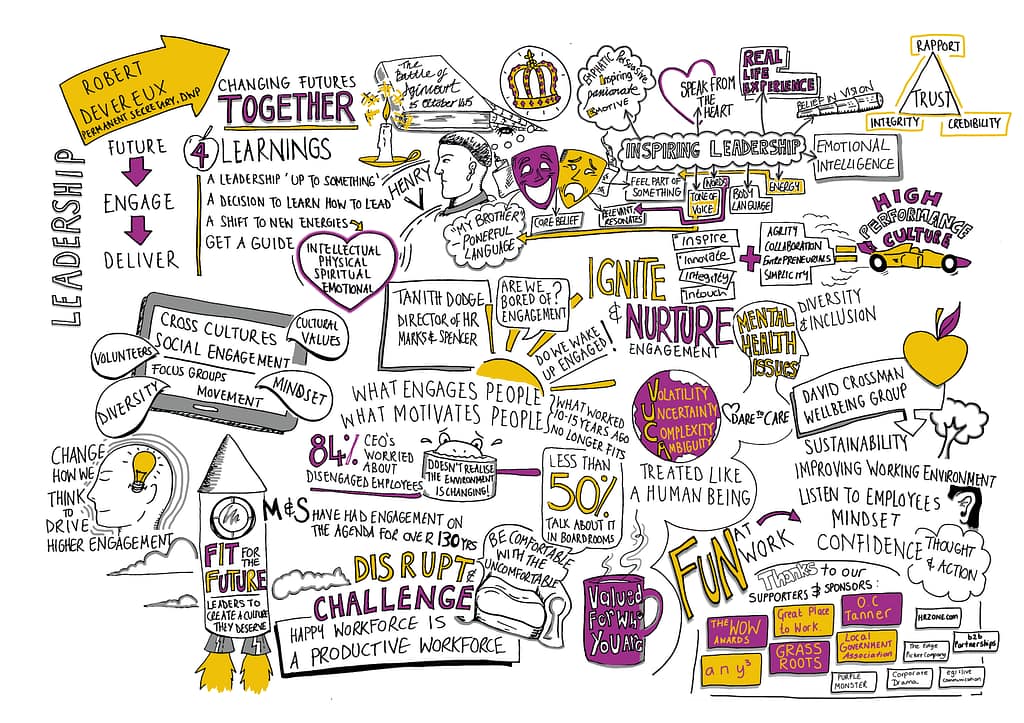 ROBERT
DEVEREUX
PERMANENT SECRETERY, DWP
LEADERSHIP
FUTURE
ENGAGE
DELIVER
CHANGING FUTURES
TOGETHER
4 LEARNINGS
A LEADERSHIP 'UP TO SOMETHING'
A DECISION TO LEARN HOW TO LEAD
A SHIFT TO NEW ENERGIES
GET A GUIDE
INTELLECTUAL
PHYSICAL
SPIRITUAL
EMOTIONAL
The
Battle of
Agincourt
15 October 1415
HENRY
V
"MY BROTHER"
POWERFUL
LANGUAGE
EMPHATIC Persuasive
Inspiring
passionate
EMOTIVE
SPEAK FROM
THE
HEART
REAL
LIFE
EXPERIENCE
BELIEF IN VISION
RAPPORT
TRUST
INTEGRITY
CREDIBILITY
INSPIRING LEADERSHIP
EMOTIONAL
INTELLIGENCE
FEEL PART OF
SOMETHING
WORDS
TONE OF
VOICE
BODY
LANGUAGE
ENERGY
CORE BELIEF
RELEVANT
RESONATES
inspire
innovate
integrity
intouch
AGILITY
COLLABORATION
ENTREPRENEURIAS
SIMPLICITY
HIGH
PERFORMANCE
CULTURE
IGNITE
& NURTURE
ENGAGEMENT
MENTAL
HEALTH
ISSUES
DIVERSITY
& INCLUSION
TANITH DODGE
DIRECTOR OF HR
MARKS & SPENCER
ARE WE
BORED OF?
ENGAGEMENT
DO WE WAKE
UP ENGAGED!
CROSS CULTURES
SOCIAL ENGAGEMENT
FOCUS GROUPS
MOVEMENT
CULTURAL
VALUES
VOLUNTEERS
DIVERSITY
MINDSET
WHAT ENGAGES PEOPLE
WHAT MOTIVATES PEOPLE?
WHAT WORKED
10-15 YEARS AGO
NO LONGER FITS
VOLATILITY
UNCERTAINTY
COMPLEXITY
AMBIGUITY
DARE TO CARE
DAVID CROSSMAN
WELLBEING GROUP
SUSTAINABILITY
IMPROVING WORKING ENVIRONMENT
LISTEN TO EMPLOYEES
MINDSET
CONFIDENCE
THOUGHT
& ACTION
84% CEO'S
WORRIED
ABOUT
DISENGAGED EMPLOYEES
DOESN'T REALISE
THE ENVIRONMENT
IS CHANGING!
LESS THAN
50%
TALK ABOUT IT
IN BOARDROOMS
TREATED LIKE
A HUMAN BEING
CHANGE
HOW WE
THINK
TO
DRIVE
HIGHER ENGAGEMENT
FIT FOR THE
FUTURE
LEADERS TO
CREATE A CULTURE
THEY DESERVE
M&S HAVE HAD ENGAGEMENT ON
THE AGENDA FOR OVER 130 YRS
DISRUPT &
CHALLENGE
BE COMFORTABLE
WITH THE
UNCOMFORTABLE
HAPPY WORKFORCE IS
A PRODUCTIVE WORKFORCE
Valued
For Who
You Are
FUN AT
WORK
Thanks to our
SUPPORTERS & SPONSORS:
THE WOW
AWARDS
Great Place
to Work
O.C
Tanner
HRZONE.com
any3
GRASS
ROOTS
Local
GOVERNMENT
Association
The Edge
Picture Company
b2b
Partnerships
PURPLE
MONSTER
Corporate
Drama